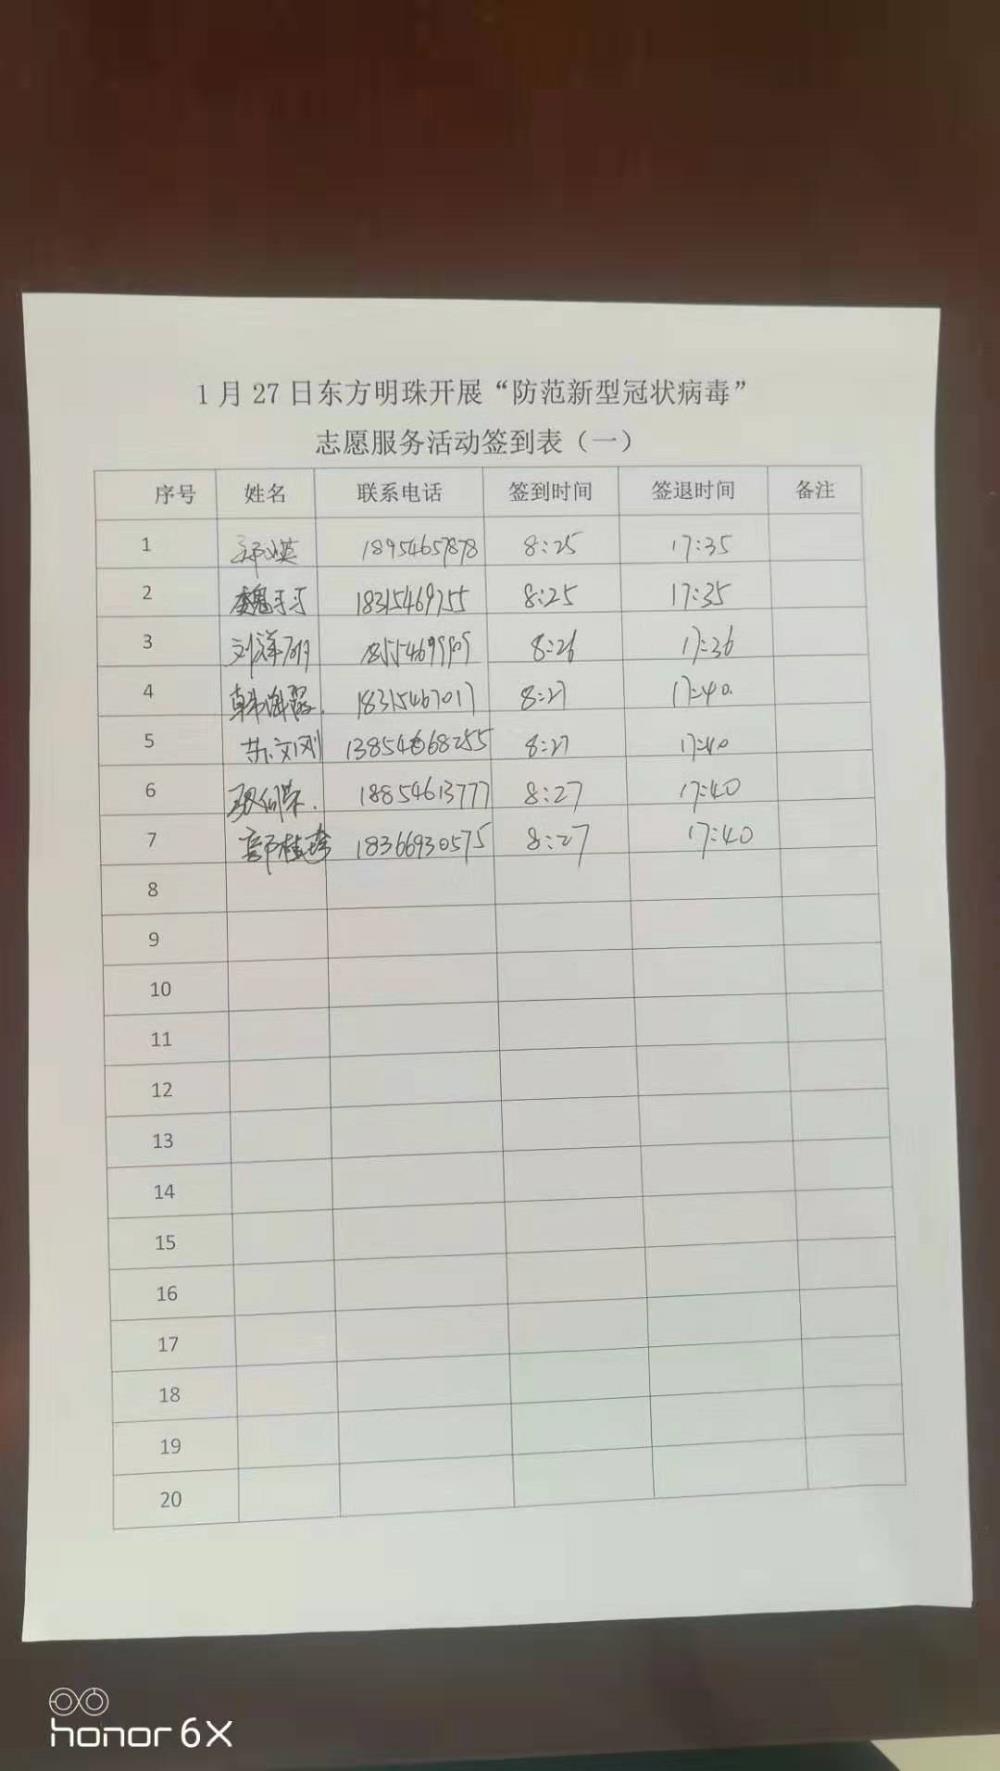 1月27日东方明珠开展“防范新型冠状病毒”
志愿服务活动签到表（一）
序号 姓名 联系电话 签到时间 签退时间 备注
1 18954657878 8:25 17:35
2 魏 18315469755 8:25 17:35
3 刘洋 8:26 17:36
4 韩海 18315467017 8:27 17:40.
5 苏文刚 13854668255 8:27 17:40
6 18854613777 8:27 17:40
7 郭桂 18366930575 8:27 17:40
8
9
10
11
12
13
14
15
16
17
18
19
20
honor 6X